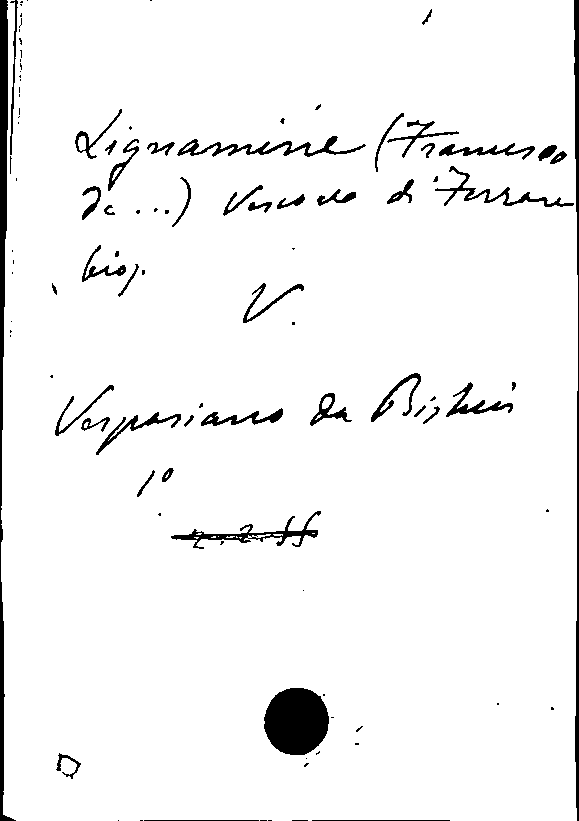 Lignamine (Francesco
da ...) Vescovo di Ferrara
biog.
V.
Vespasiano da Bisticci
1º
2.2.55